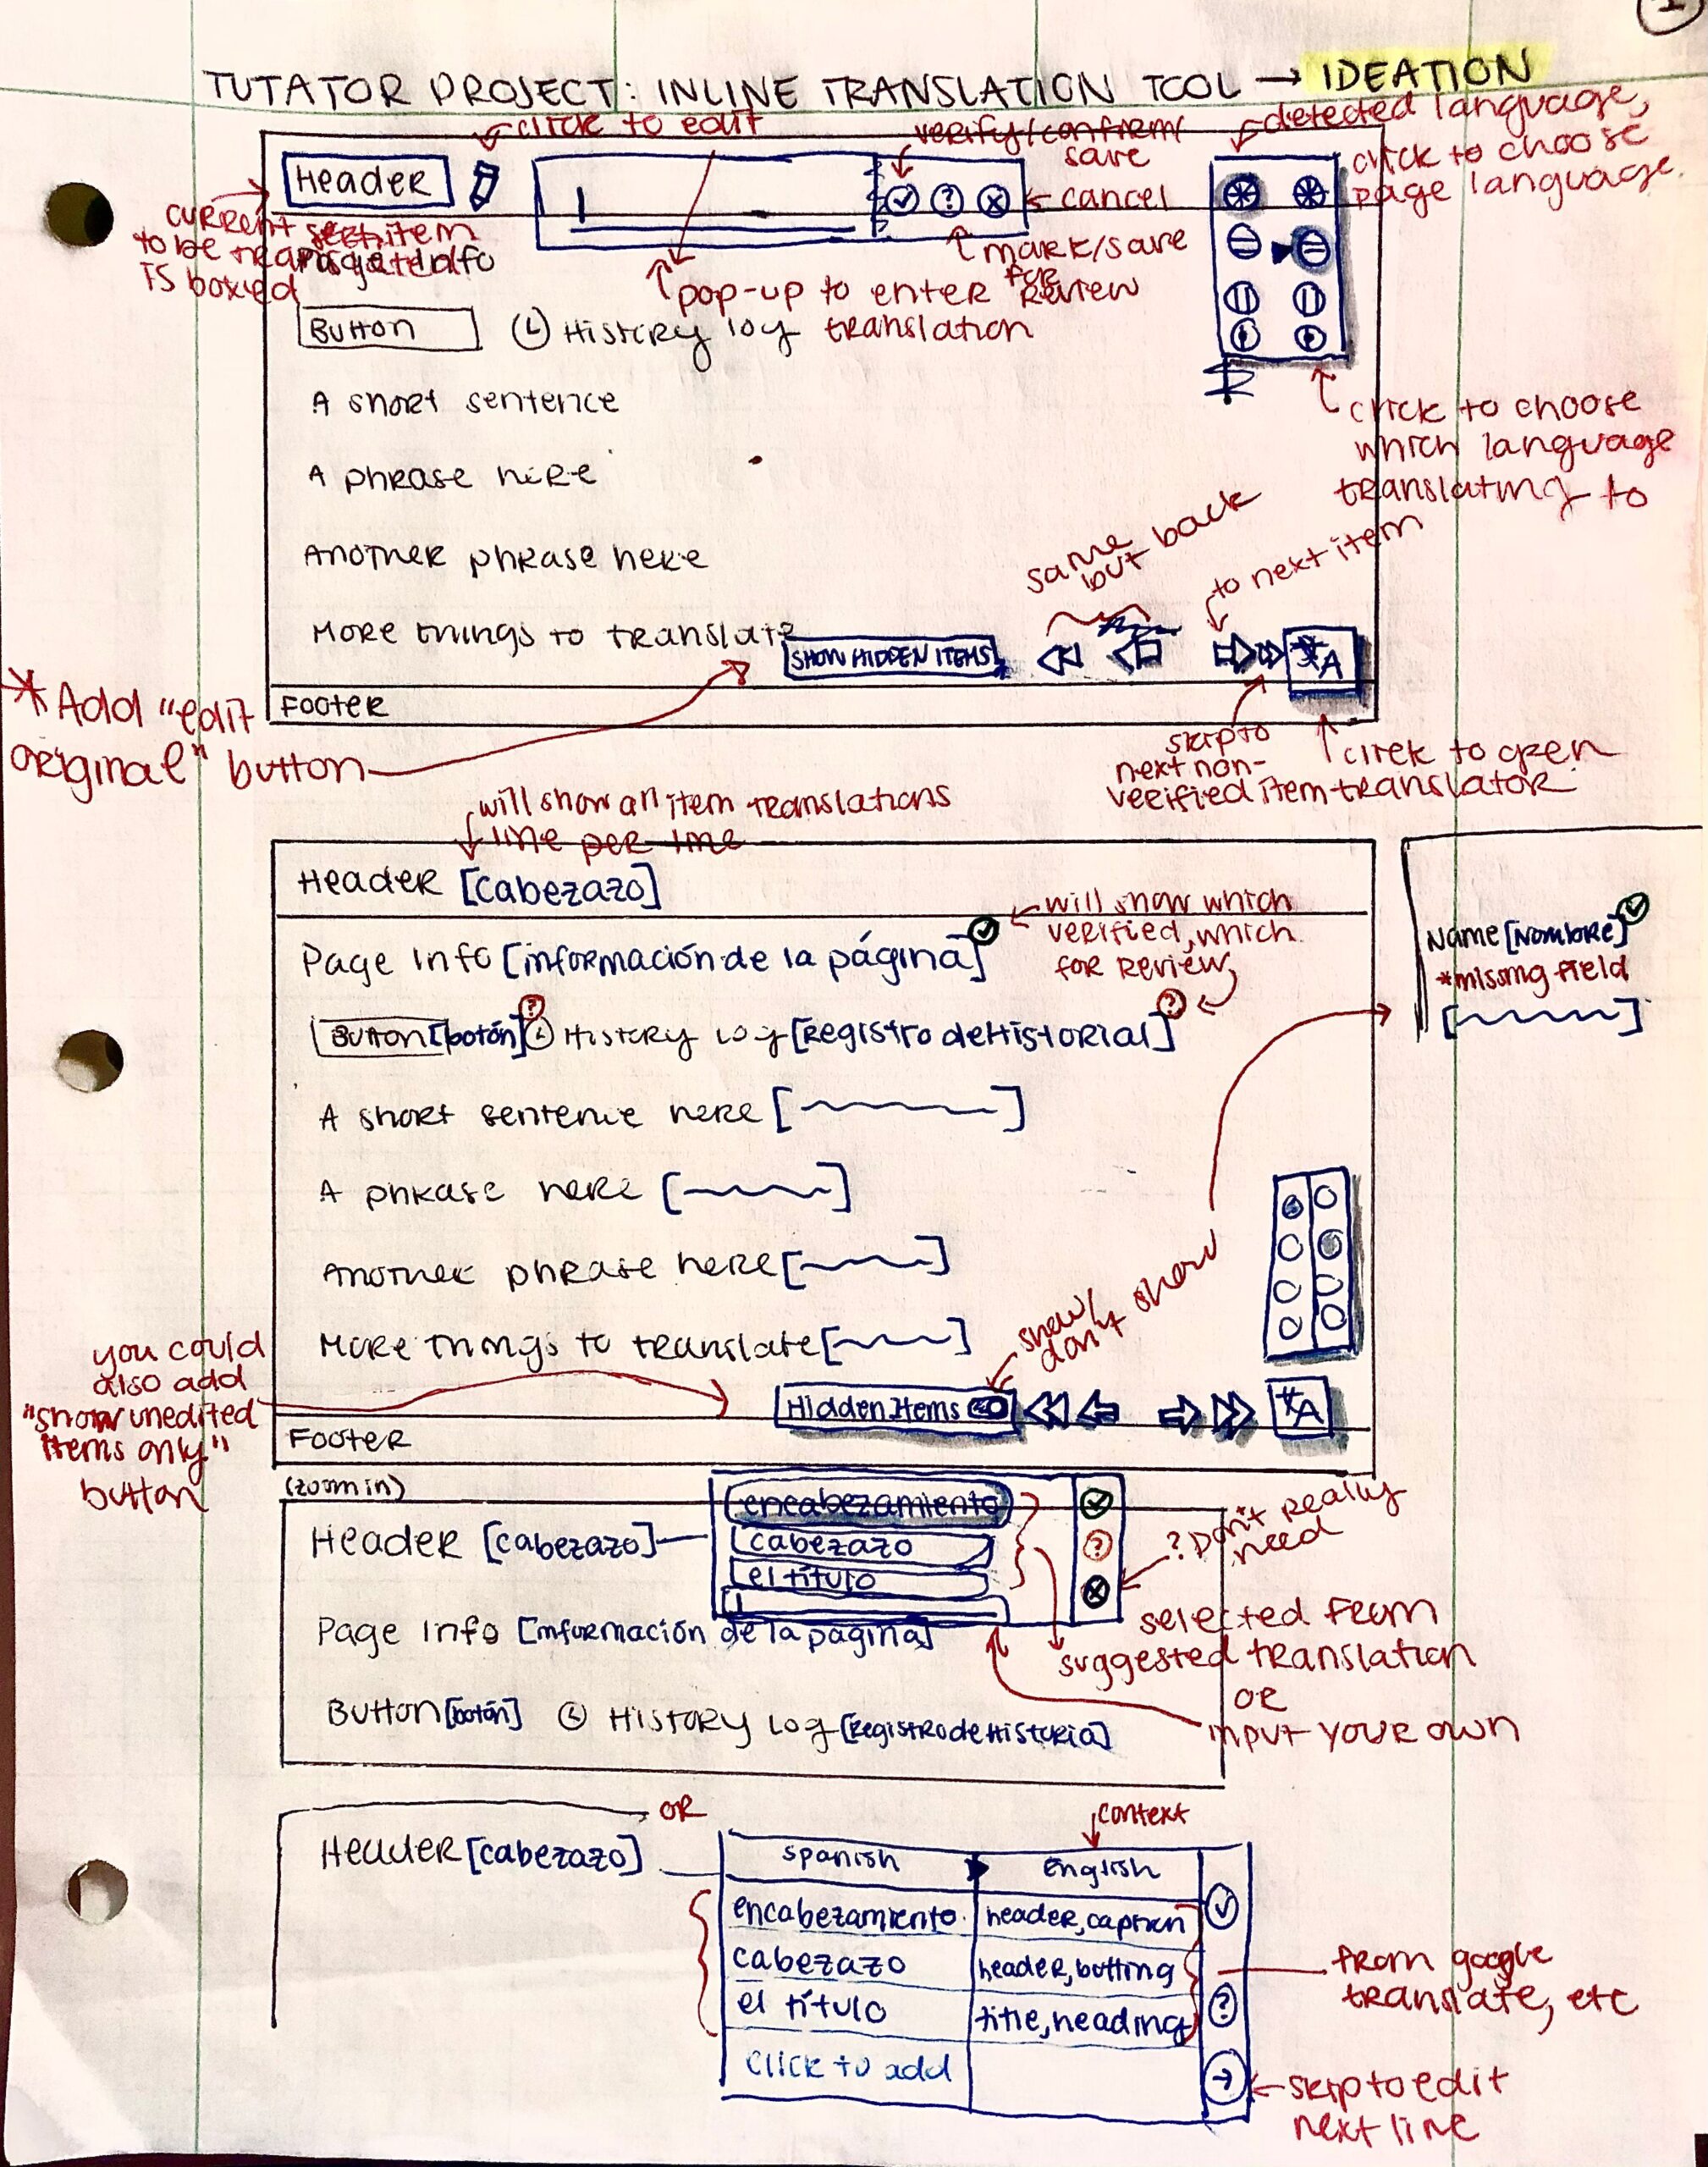 1
TUTATOR PROJECT: INLINE TRANSLATION TOOL → IDEATION
click to edit
verify/confirm/
save
detected language,
click to choose
page language.
Header
cancel
current item
to be translated
is boxed
Page Info
mark/save
for
review
pop-up to enter
translation
Button
History log
A short sentence
click to choose
which language
translating to
A phrase here
same
but back
to next item
Another phrase here
More things to translate
SHOW HIDDEN ITEMS
A
Footer
* Add "edit
original" button
skip to
next non-
verified item
click to open
translator
will show all item translations
line per line
Header [cabezazo]
will show which
verified, which
for review
Page Info [información de la página]
Name [Nombre]
*missing field
Button [botón] ? History log [Registro de Historial] ?
A short sentence here [ ]
A phrase here [ ]
Another phrase here [ ]
show/
don't show
More things to translate [ ]
you could
also add
"show unedited
items only"
button
Hidden Items
A
Footer
(zoom in)
encabezamiento
Header [cabezazo]
cabezazo
el título
?
? Don't really
need
Page Info [información de la página]
selected from
suggested translation
OR
input your own
Button [botón] History Log [Registro de Historia]
OR
context
Header [cabezazo]
Spanish English
encabezamiento header, caption
cabezazo header, butting
el título title, heading
?
click to add
from google
translate, etc
skip to edit
next line